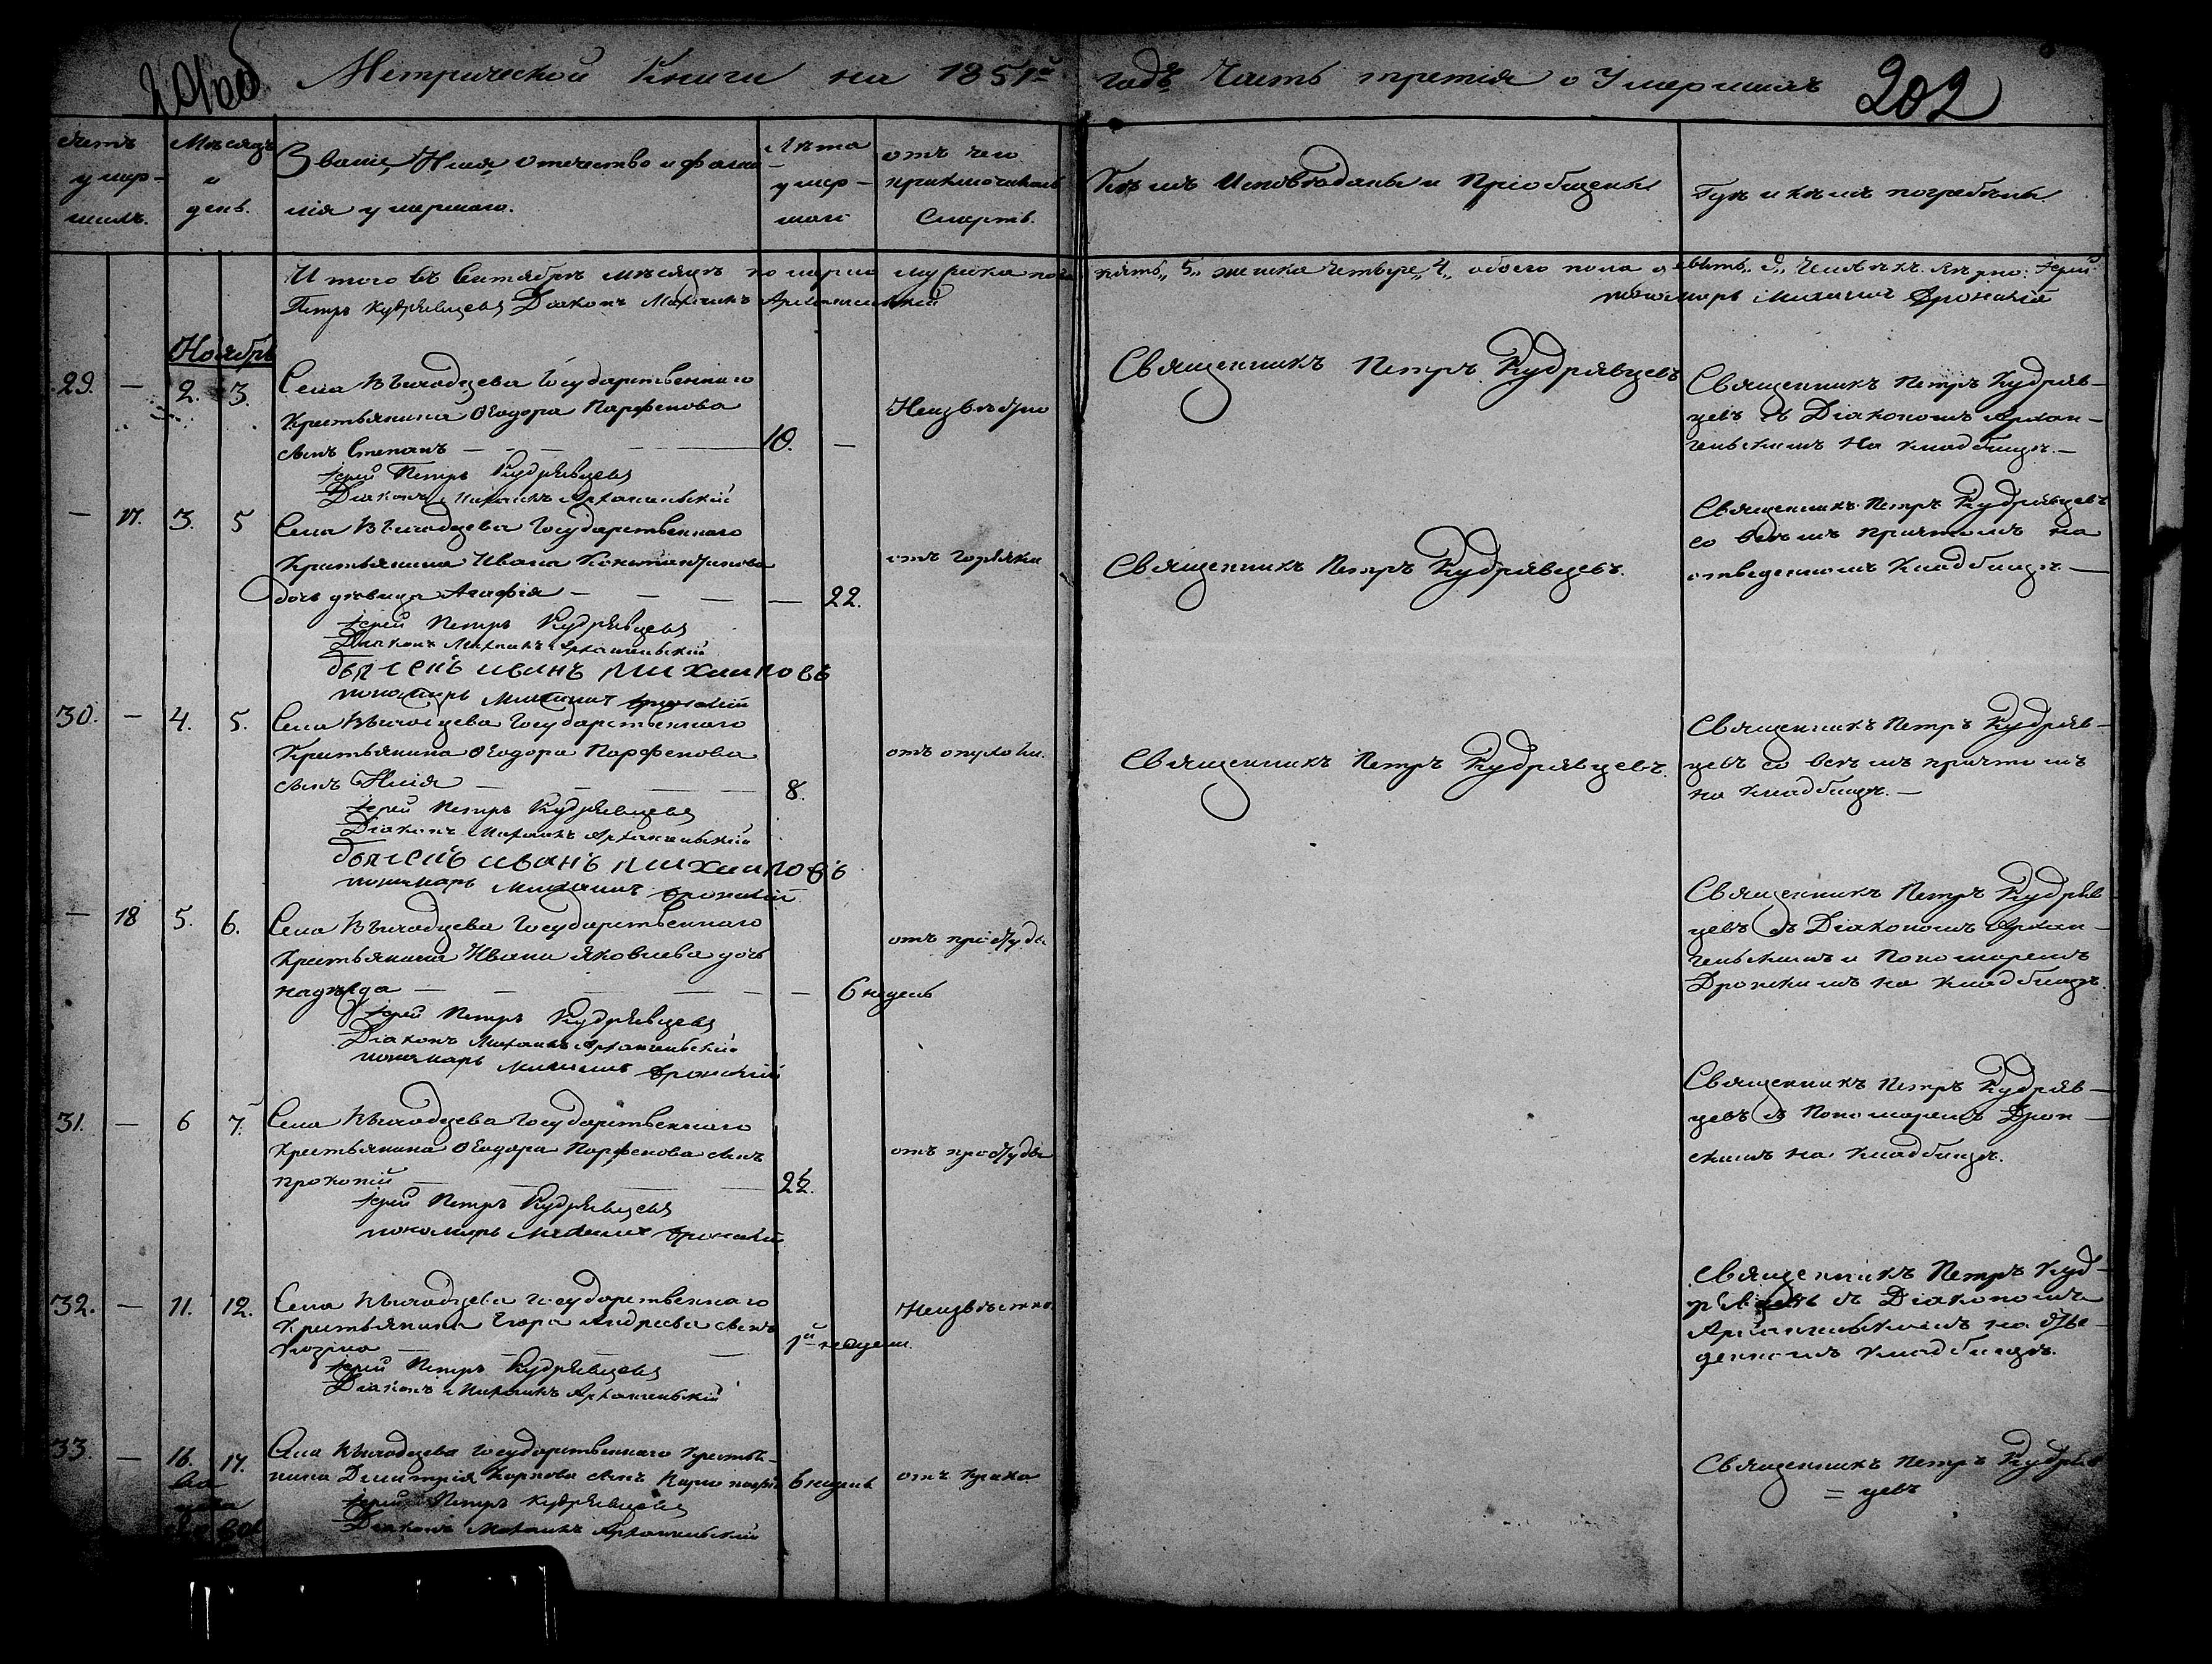 201об
Метрической Книги на 1851й годъ Часть третія о Умершихъ
202
Счетъ умер-шихъ.
Мѣсяцъ и день.
Званіе, Имя, отечество и фами-
лія умершаго.
Лѣта умер-шаго
отъ чего приключилась Смерть.
Кѣмъ Исповѣданы и Пріобщены
Гдѣ и кѣмъ погребены.
Итого въ Сентябрѣ мѣсяцѣ померло мужска пола пять „5„ женска четверо „4„ обоего пола девять „9„ Человѣкъ. Вѣрно: Іерей
Петръ Кудрявцевъ Діаконъ Михаилъ Архангельскій
пономарь Михаилъ Дронскій
Ноябрь
29. — 2. 3.
Села Вышодцева Государственнаго
Крестьянина Ѳеодора Парфенова
сынъ Степанъ — 10. —
Неизвѣстно
Священникъ Петръ Кудрявцевъ
Священникъ Петръ Кудряв-
цевъ съ Діакономъ Архан-
гельскимъ на кладбищѣ. —
Іерей Петръ Кудрявцевъ
Діаконъ Михаилъ Архангельскій
— 17. 3. 5
Села Вышодцева Государственнаго
Крестьянина Ивана Константинова
дочь дѣвица Агафія — — 22.
отъ горячки
Священникъ Петръ Кудрявцевъ.
Священникъ Петръ Кудрявцевъ
со всѣмъ причтомъ на
отведенномъ Кладбищѣ —
Іерей Петръ Кудрявцевъ
Діаконъ Михаилъ Архангельскій
дьячекъ иванъ михаиловъ
пономарь Михаилъ Дронскій
30. — 4. 5.
Села Вышодцева Государственнаго
Крестьянина Ѳеодора Парфенова
сынъ Илія — 8.
отъ опухоли.
Священникъ Петръ Кудрявцевъ.
Священникъ Петръ Кудряв-
цевъ со всѣмъ причтомъ
на кладбищѣ. —
Іерей Петръ Кудрявцевъ
Діаконъ Михаилъ Архангельскій
дьячекъ иванъ михаиловъ
пономарь Михаилъ Дронскій
— 18 5. 6.
Села Вышодцева Государственнаго
Крестьянина Ивана Яковлева дочь
надежда — — 6 недѣль
отъ простуды
Священникъ Петръ Кудряв
цевъ съ Діакономъ Архан-
гельскимъ и Пономаремъ
Дронскимъ на кладбищѣ.
Іерей Петръ Кудрявцевъ
Діаконъ Михаилъ Архангельскій
пономарь Михаилъ Дронскій
31. — 6 7.
Села Вышодцева Государственнаго
Крестьянина Ѳеодора Парфенова сынъ
прокопій —
отъ простуды
Священникъ Петръ Кудряв-
цевъ съ Пономаремъ Дрон-
скимъ на кладбищѣ.
Іерей Петръ Кудрявцевъ
пономарь Михаилъ Дронскій
32. — 11. 12.
Села Вышодцева Государственнаго
Крестьянина Егора Андреева сынъ
Козма — 1й недѣли.
Неизвѣстно.
Священникъ Петръ Куд-
рявцевъ съ Діакономъ
Архангельскимъ на отве-
денномъ кладбищѣ.
Іерей Петръ Кудрявцевъ
Діаконъ Михаилъ Архангельскій
33. — 16. 17.
Села Вышодцева Государственнаго Крестья-
нина Димитрія Карпова сынъ 6 недѣль
отъ крика
Священникъ Петръ Кудряв
= цевъ
Іерей Петръ Кудрявцевъ
Діаконъ Михаилъ Архангельскій